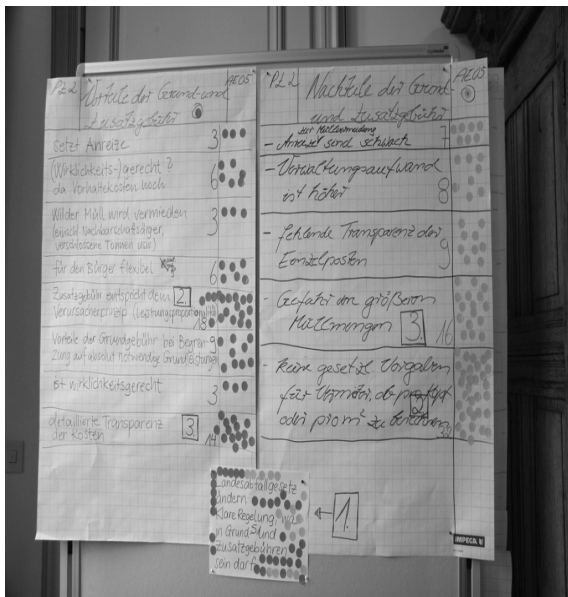 PL 2
Vorteile der Grund- und
Zusatzgebühr
AE05
setzt Anreize
3
(Wirklichkeits-)gerecht ?
da Vorhaltekosten hoch
6
Wilder Müll wird vermieden
verschlossene Tonnen
3
für den Bürger flexibel
6
Zusatzgebühr entspricht dem
2.
Verursacherprinzip
18
Vorteile der Grundgebühr bei Begren-
zung auf absolut notwendige Grundleistungen
9
ist wirklichkeitsgerecht
3
detaillierte Transparenz
der Kosten
3.
14
PL 2
Nachteile der Grund-
und Zusatzgebühr
AE05
zur Müllvermeidung
- Anreize sind schwach
7
- Verwaltungsaufwand
ist höher
8
- fehlende Transparenz der
Einzelposten
9
- Gefahr von größeren
Müllmengen
3.
16
- keine gesetzl Vorgaben
für Vermöter, ob pro Kopf
oder pro m² zu berechnen
Landesabfallgesetz
ändern
klare Regelung,
in Grund- und
Zusatzgebühren
sein darf
← 1.
IMPEGA